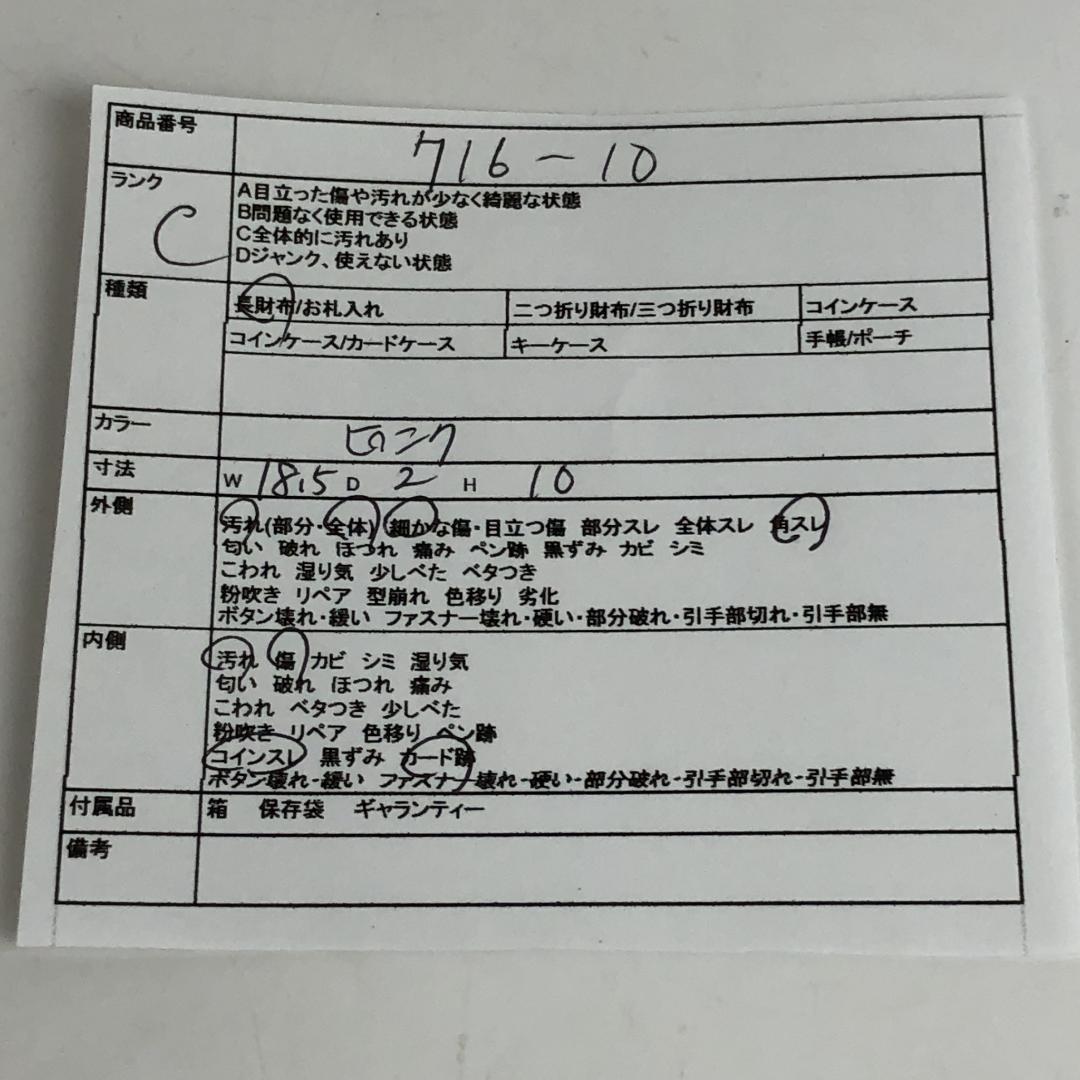 商品番号 716-10
ランク C
A目立った傷や汚れが少なく綺麗な状態
B問題なく使用できる状態
C全体的に汚れあり
Dジャンク、使えない状態
種類 長財布/お札入れ 二つ折り財布/三つ折り財布 コインケース
コインケース/カードケース キーケース 手帳/ポーチ
カラー ピンク
寸法 W 18.5 D 2 H 10
外側 汚れ(部分・全体) 細かな傷・目立つ傷 部分スレ 全体スレ 角スレ
匂い 破れ ほつれ 痛み ペン跡 黒ずみ カビ シミ
こわれ 湿り気 少しべた ベタつき
粉吹き リペア 型崩れ 色移り 劣化
ボタン壊れ・緩い ファスナー壊れ・硬い・部分破れ・引手部切れ・引手部無
内側 汚れ 傷 カビ シミ 湿り気
匂い 破れ ほつれ 痛み
こわれ ベタつき 少しべた
粉吹き リペア 色移り ペン跡
コインスレ 黒ずみ カード跡
ボタン壊れ-緩い ファスナー壊れ-硬い-部分破れ-引手部切れ-引手部無
付属品 箱 保存袋 ギャランティー
備考